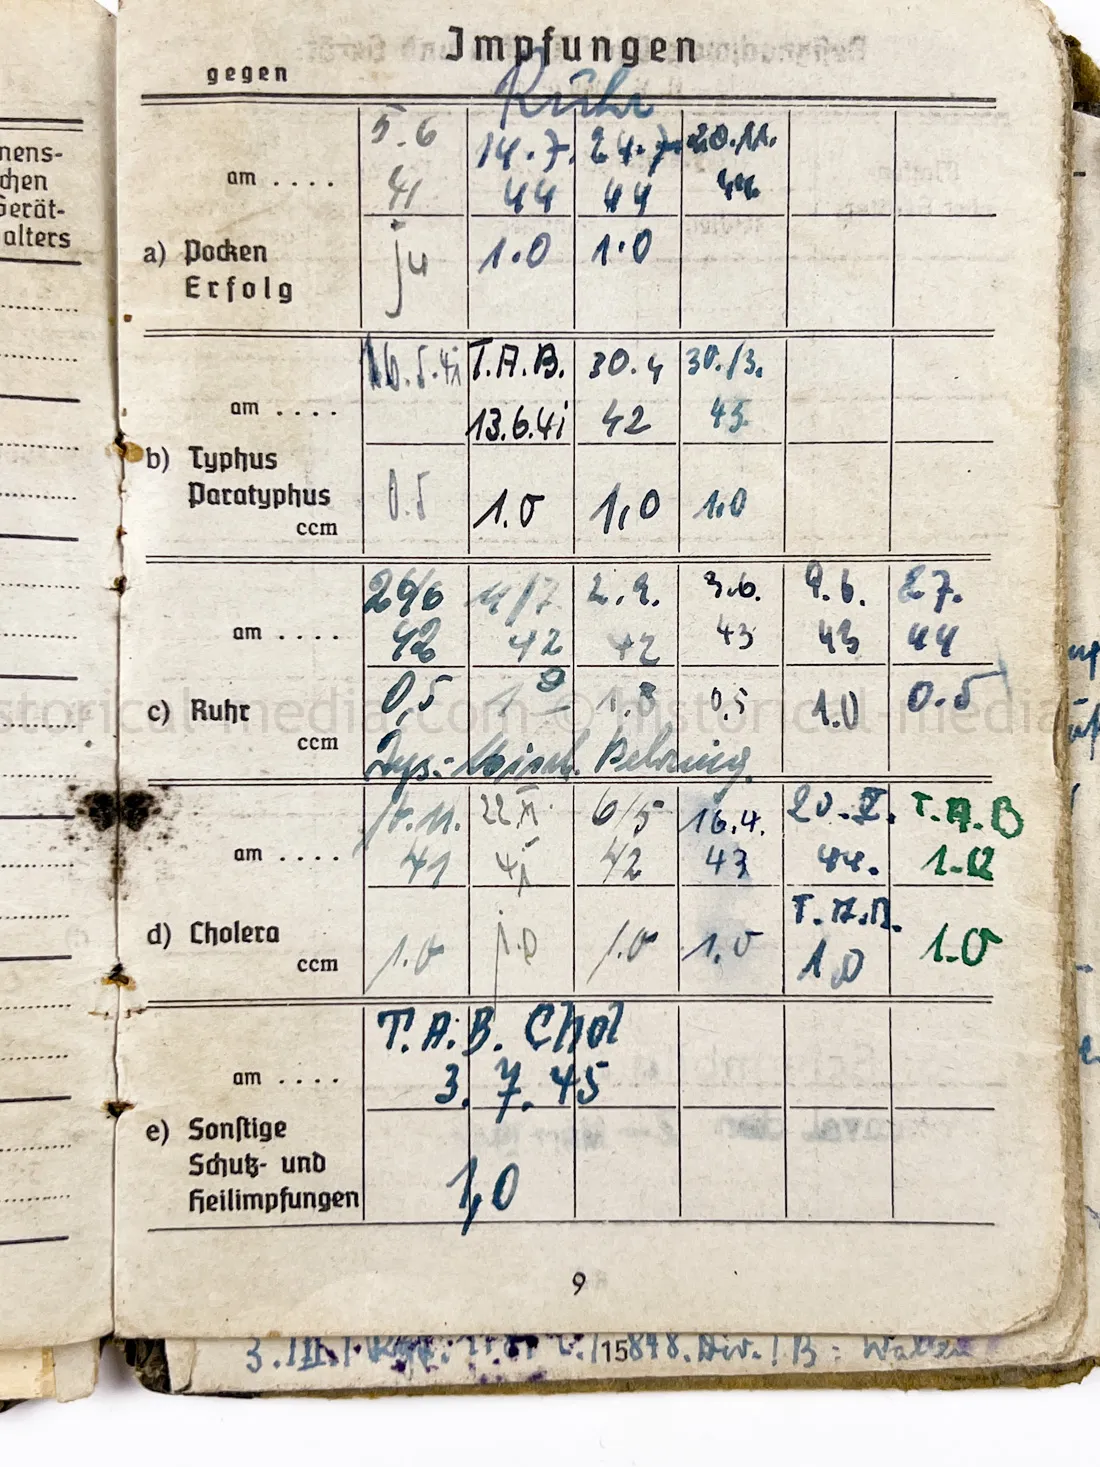 Impfungen
gegen
Ruhr
5.6 14.7. 24.7. 20.11.
am .... 41 44 44 44
a) Pocken ja 1.0 1.0
Erfolg
nens-
chen
Gerät-
alters
16.5.41 T.A.B. 30.4 30./3.
am .... 13.6.41 42 45
b) Typhus
Paratyphus 0.5 1.0 1,0 1.0
ccm
29/6 4/7 2.9. 3.6. 9.6. 27.
am .... 42 42 42 43 43 44
c) Ruhr 0,5 0,5 1.0 0.5
ccm
22 6/5 16.4. 20.V. T.A.B
am .... 41 41 42 43 44. 1.0
T.A.B.
d) Cholera 1.0 1.0 1.0 1.0 1.0 1.0
ccm
T.A.B. Chol
am .... 3.7.45
e) Sonstige
Schutz- und 1,0
Heilimpfungen
9
15848. Div. / B:
historical-media.com © historical-media